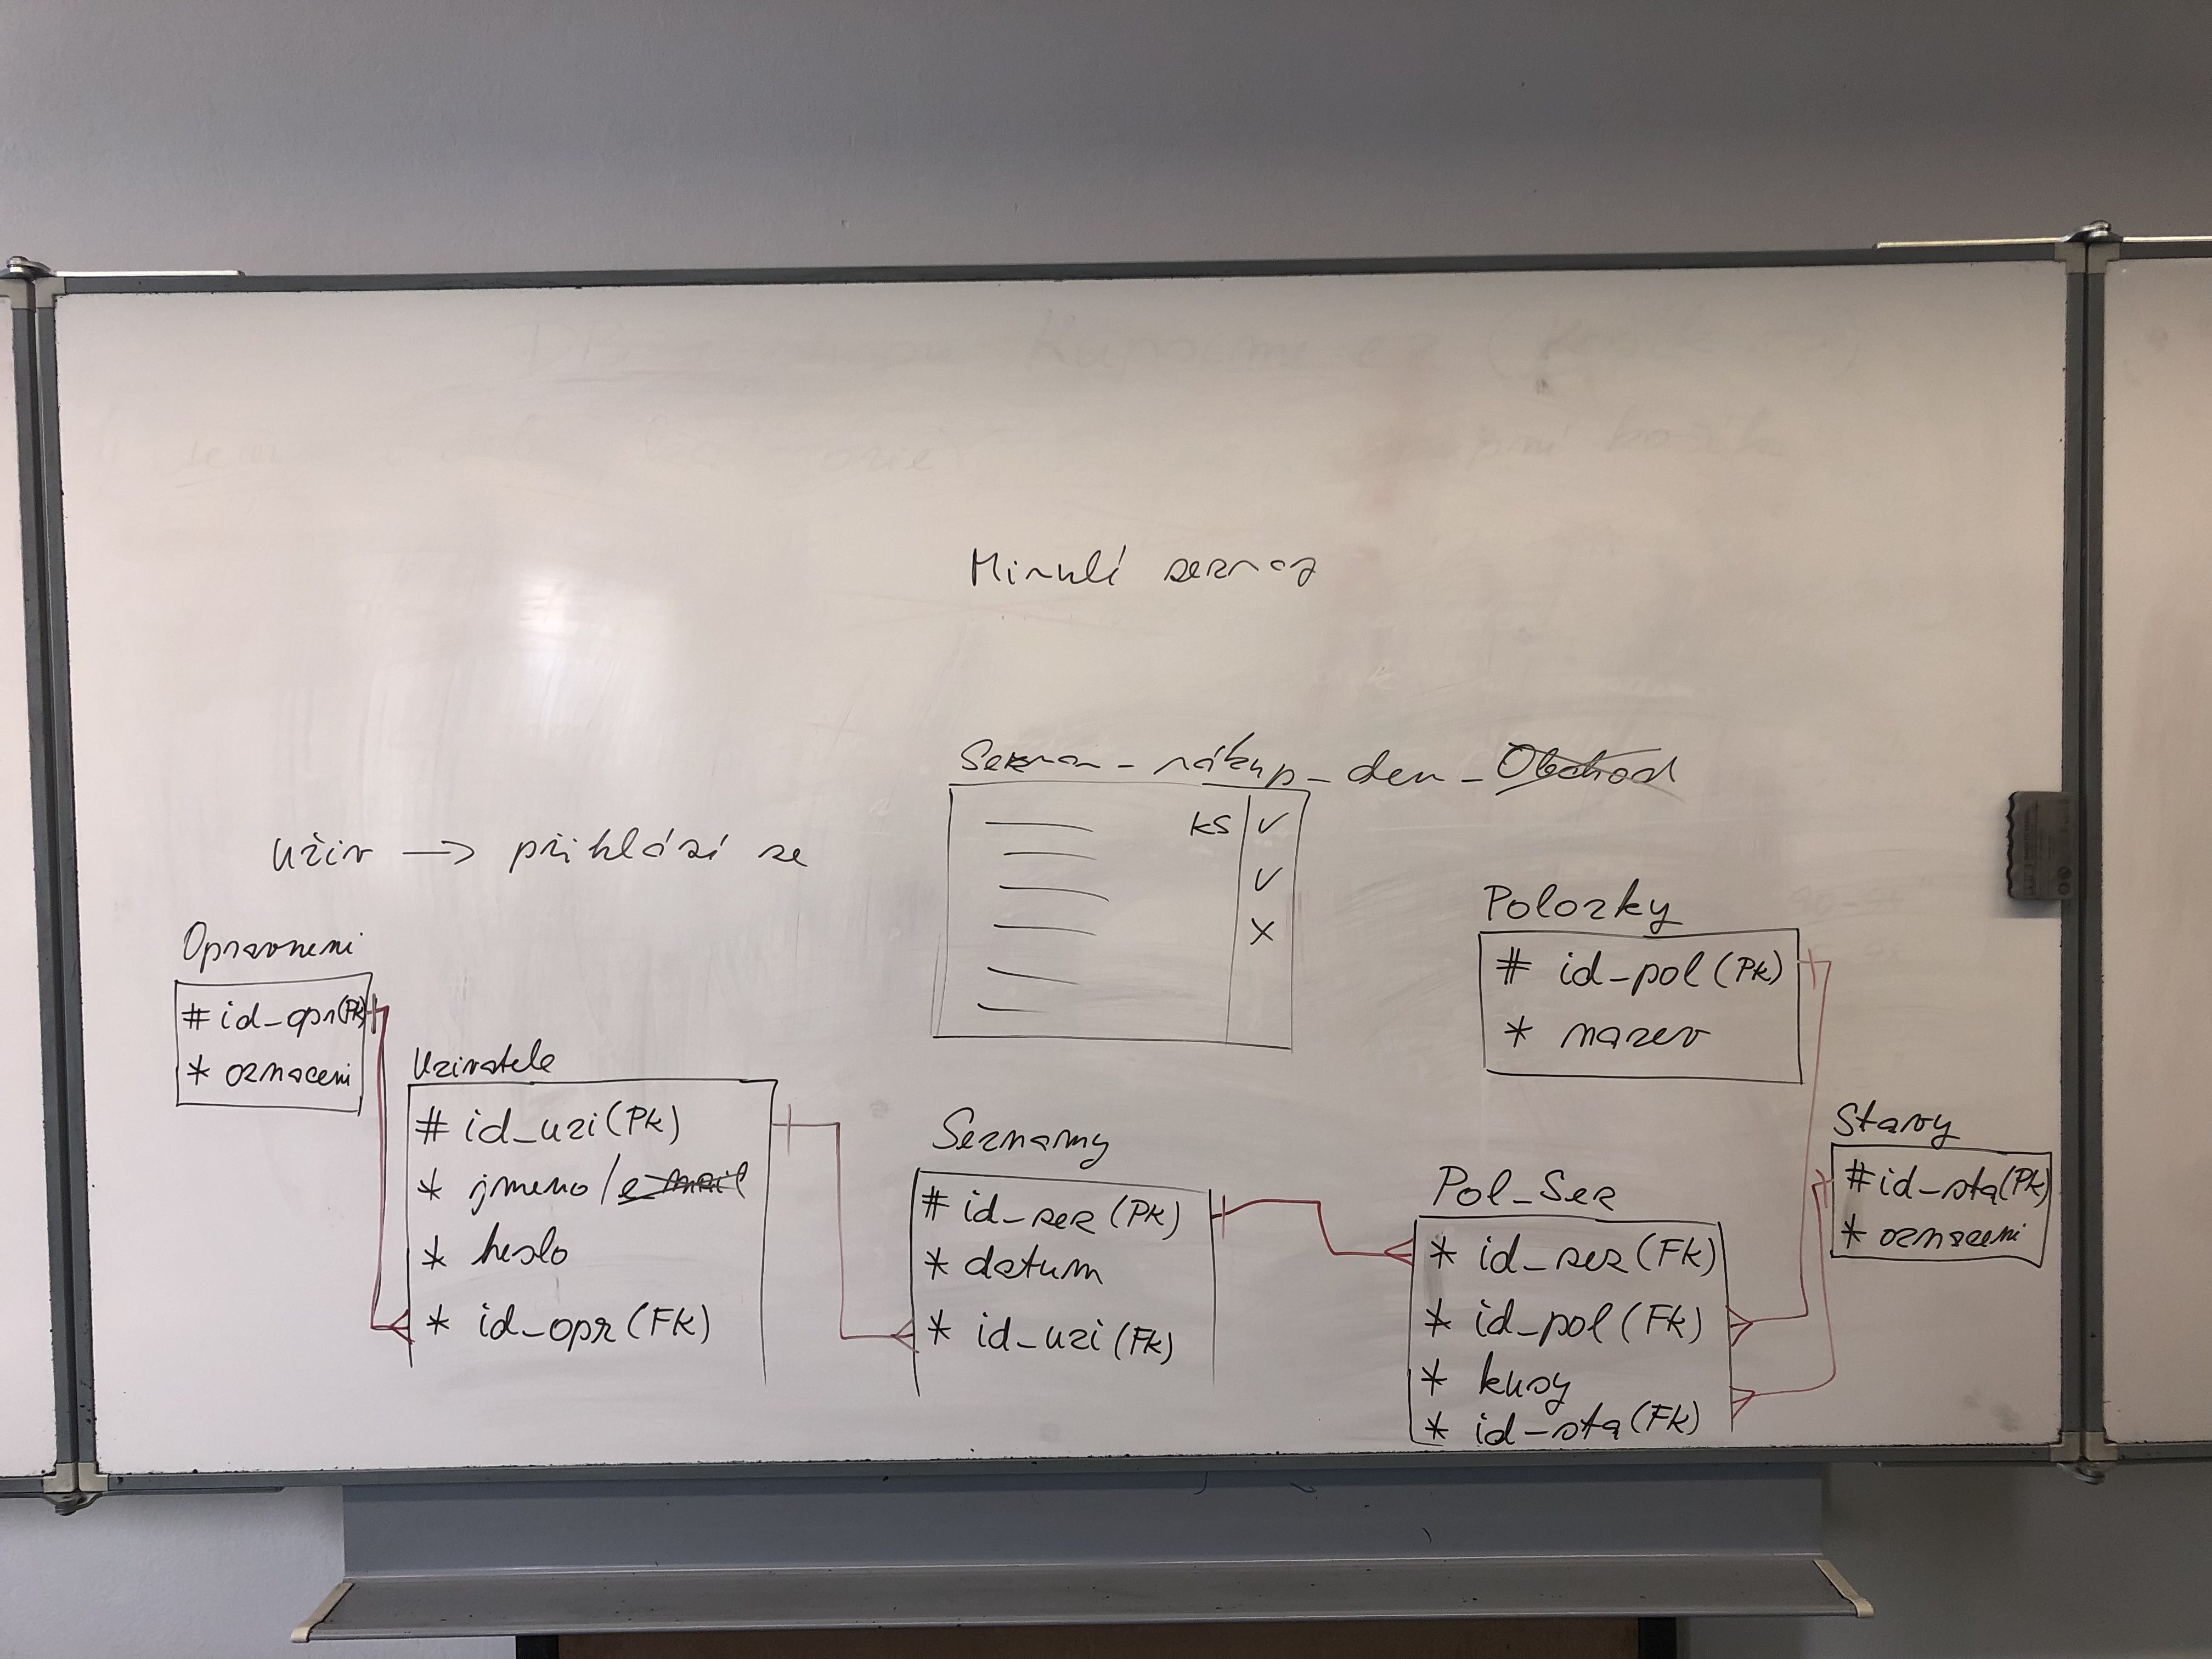 Minulí seznam
Seznam - nákup - den - Obchod
ks v
v
x
uživ → přihlásí se
Opravneni
# id_opr(Pk)
* oznaceni
Uzivatele
# id_uzi (Pk)
* jmeno / e-mail
* heslo
* id_opr (Fk)
Seznamy
# id_sez (Pk)
* datum
* id_uzi (Fk)
Polozky
# id_pol (Pk)
* nazev
Pol_Sez
* id_sez (Fk)
* id_pol (Fk)
* kusy
* id_sta (Fk)
Stavy
# id_sta (Pk)
* oznaceni